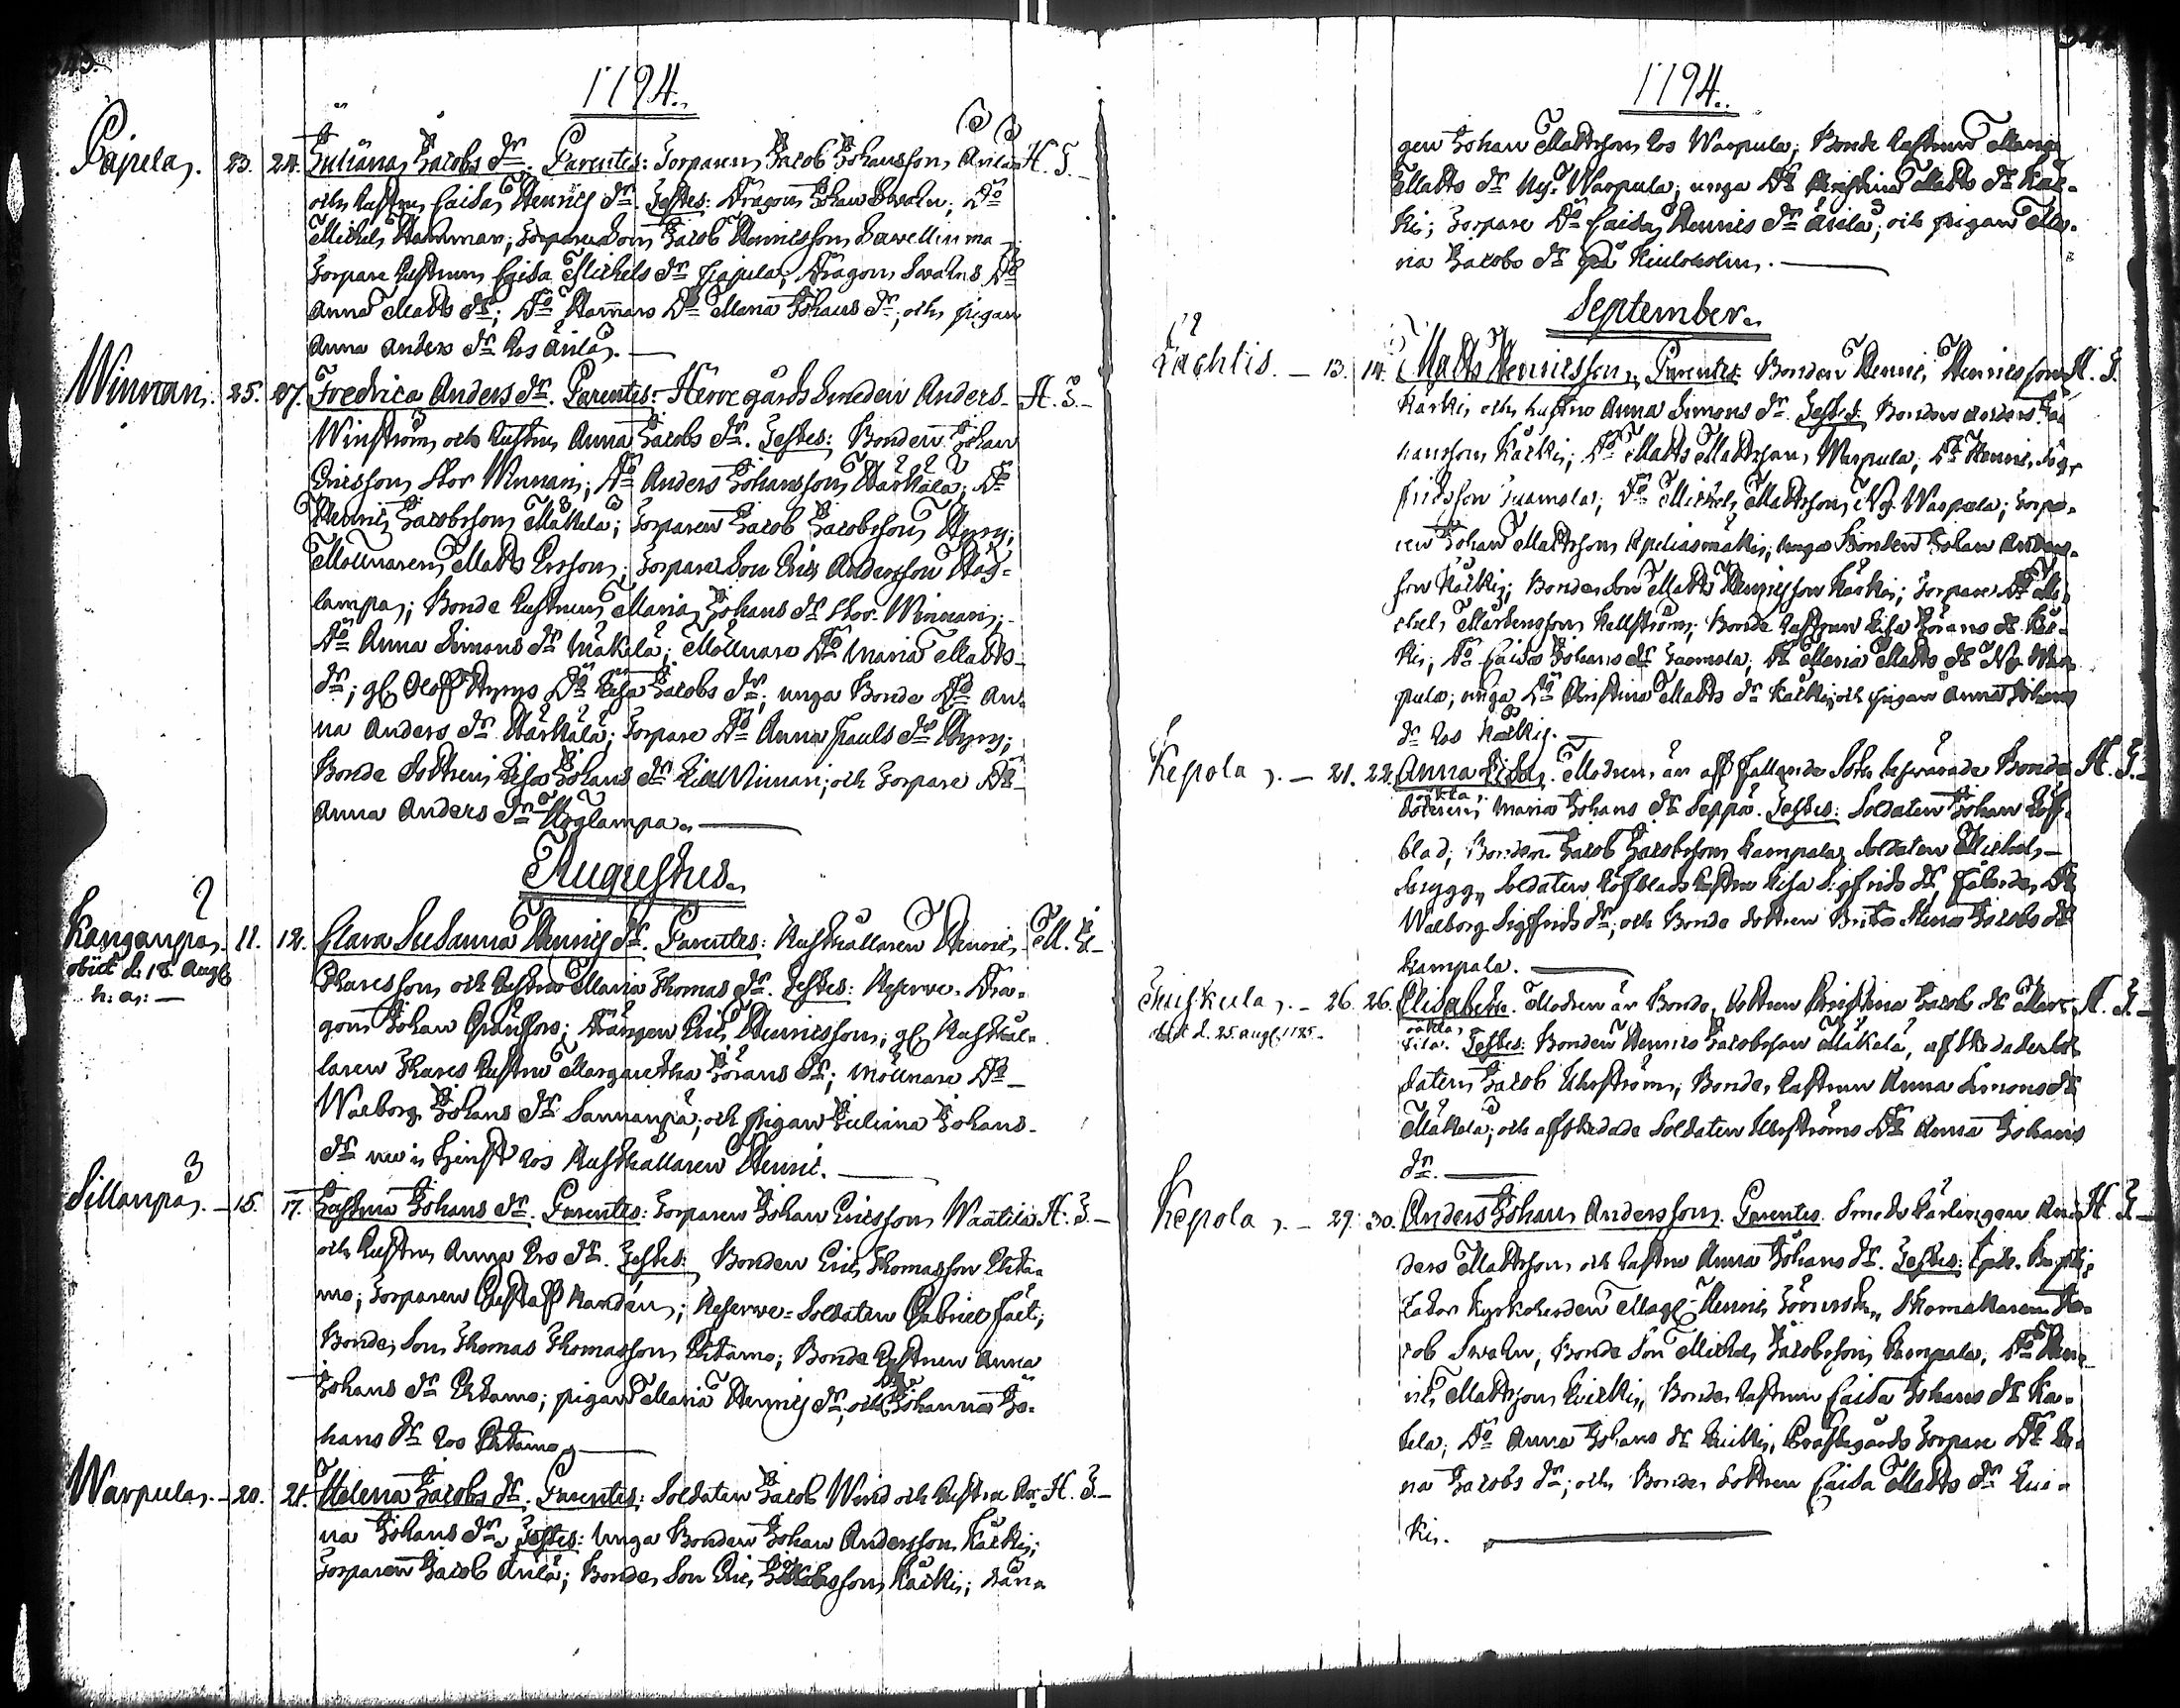 1794.
Pajula. 23. 24. Juliana Jacobs dr. Parentes: Torparen Jacob Johansson Anila H. T.
och hustrun Caisa Henrics dr. Testes: Dragon Johan Swahn; Do
Michel Hamman; Torpare Son Jacob Henricsson
Torpare hustrun Caisa Michels dr Pajula; Dragon Swahns Do
Anna Matts dr; Do Hammans Do Maria Johans dr; och pigan
Anna Anders dr hos Anila.
Winnari. 25. 27. Fredrica Anders dr. Parentes: Herregårds Smeden Anders H. T.
Winström och hustru Anna Jacobs dr. Testes: Bonden Johan
Ericsson Stor Winnari; Do Anders Johansson Härkälä; Do
Henric Jacobsson Mäkelä; Torparen Jacob Jacobsson Hyry;
Möllnaren Matts Ersson; Torpare Son Eric Andersson Hög-
lampa; Bonde hustrun Maria Johans dr Stor-Winnari;
Do Anna Simons dr Mäkelä; Möllnare Do Maria Matts
dr; gl. Olof Hyrys Do Lisa Jacobs dr; unga Bonde Do An-
na Anders dr Härkälä; Torpare Do Anna Pauls dr Hyry;
Bonde Dottren Lisa Johans dr Winnari; och Torpare Do
Anna Anders dr Höglampa.
Augustus.
Kanganpä. 11. 12. Clara Susanna Henrics dr. Parentes: Rusthållaren Henric M. T.
obiit d. 18 Aug.
h. a:
Tharesson och hustru Maria Thomas dr. Testes: Reserve Dra-
gon Johan Granfors; Drängen Eric Henricsson; gl. Rusthål-
laren Thares hustru Margaretha Jörans dr; Möllnare Do
Walborg Johans dr Sannanpä; och pigan Juliana Johans
dr nu i tjenst hos Rusthållaren Henric.
Sillanpä. 15. 17. Justina Johans dr. Parentes: Torparen Johan Ericsson Waatila H. T.
och hustru Anna Ers dr. Testes: Bonden Eric Thomasson Ehta-
mo; Torparen Gustaf Randén; Reserve-Soldaten Gabriel Fält;
Bonde Son Thomas Thomasson Ehtamo; Bonde hustrun Anna
Johans dr Ehtamo; pigan Maria Henrics dr; och Do Johanna Jo-
hans dr hos Ehtamo
Warpula. 20. 21. Helena Jacobs dr. Parentes: Soldaten Jacob Wind och hustru An- H. T.
na Johans dr. Testes: Unga Bonden Johan Andersson Kärki;
Torparen Jacob Anila; Bonde Son Eric Kärki; drän-
1794.
gen Johan Mattsson hos Warpula; Bonde hustrun Maria
Matts dr Ny-Warpula; unga Do Christina Matts dr Kär-
ki; Torpare Do Caisa Henrics dr Anila; och pigan Ma-
ria Jacobs dr på
September.
Lachtis. 13. 14. Matts Henricsson. Parentes: Bonden Henric Henricsson H. T.
Kärki och hustru Anna Simons dr. Testes: Bonden Anders Jo-
hansson Kärki; Do Matts Mattsson Warpula; Do Henric Sig-
fridsson Do Michel Mattsson Ny-Warpula; Torpa-
ren Johan Mattsson unga Bonden Johan Anders-
son Kärki; Bonde Son Matts Henricsson Kärki; Torpare Do Mi-
chel Mårtensson Hellström; Bonde hustrun Lisa Jörans dr Kär-
ki; Do Caisa Johans dr Do Maria Matts dr Ny-War-
pula; unga Do Christina Matts dr Kärki; och pigan Anna Johans
dr hos Kärki.
Kepola. 21. 22. Anna Lisa. Modren är aff fallande Sot beswärade Bonde H. T.
oäkta
dottren Maria Johans dr Seppä. Testes: Soldaten Johan Löf-
blad; Bonden Jacob Jacobsson Kampala; Soldaten Michel
Snygg; Soldaten Löfblads hustru Lisa Sigfrids dr; Do
Walborg Sigfrids dr; och Bonde dottren Brita Stina Jacobs dr
Kampala.
Tuiskula. 26. 26. Elisabeth. Modren är Bonde dottren Christina Jacobs dr H. T.
d. 25 aug. 1795.
oäkta
Testes: Bonden Henric Jacobsson Mäkelä, afskedade Sol-
daten Jacob Bonde hustrun Anna Simons dr
Mäkelä; och afskedade Soldaten Do Anna Johans
dr.
Kepola. 29. 30. Anders Johan Andersson. Parentes: Smeds An- H. T.
ders Mattsson och hustru Anna Johans dr. Testes:
Kyrkoherden Mag. Henric Skomakaren Ja-
cob Swahn, Bonde Son Michel Jacobsson Kampala, Do Hen-
ric Mattsson Bonde hustrun Caisa Johans dr
Do Anna Johans dr Prästegårds Torpare Do
na Jacobs dr; och Bonde dottren Caisa Matts dr
ki.